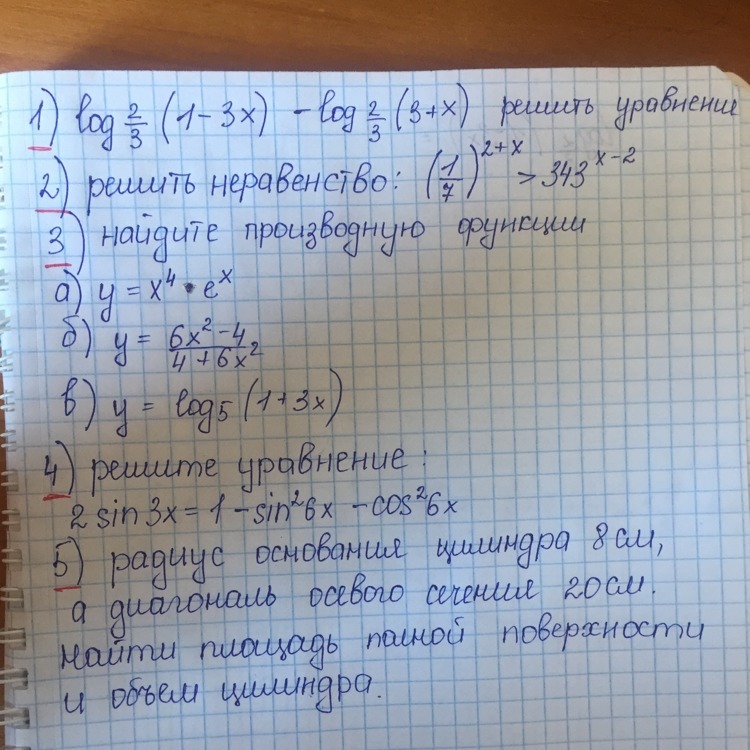 1) log 2/3 (1-3x) - log 2/3 (3+x) решить уравнение
2) решить неравенство: (1/7)^(2+x) > 343^(x-2)
3) найдите производную функции
а) y = x⁴ · eˣ
б) y = (6x²-4)/(4+6x²)
в) y = log₅(1+3x)
4) решите уравнение:
2 sin 3x = 1 - sin²6x - cos²6x
5) радиус основания цилиндра 8 см,
а диагональ осевого сечения 20 см.
Найти площадь полной поверхности
и объем цилиндра.